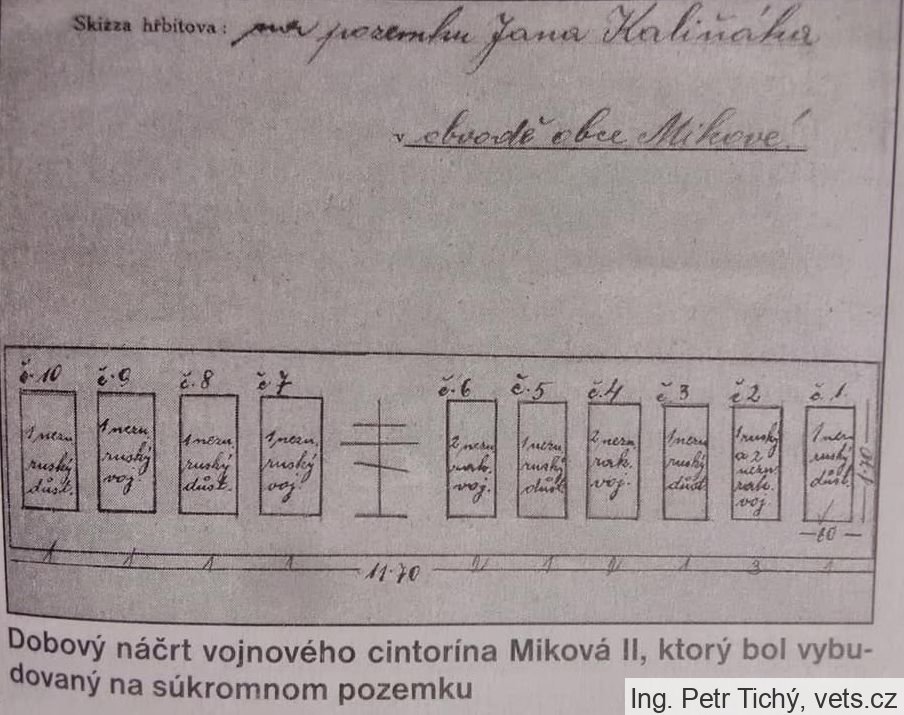 Skizza hřbitova: na pozemku Jana Kaliňáka
v obvodě obce Mikové!
č.10 č.9 č.8 č.7 č.6 č.5 č.4 č.3 č.2 č.1
1 nezn. ruský důst.
1 nezn. ruský voj.
1 nezn. ruský důst.
1 nezn. ruský voj.
2 nezn. rak. voj.
1 nezn. ruský důst.
2 nezn. rak. voj.
1 nezn. ruský důst.
1 ruský a 2 nezn. rak. voj.
1 nezn. ruský důst.
1·70
80
1 1 1 1 11·70 2 1 2 1 3 1
Dobový náčrt vojnového cintorína Miková II, ktorý bol vybu-
dovaný na súkromnom pozemku
Ing. Petr Tichý, vets.cz